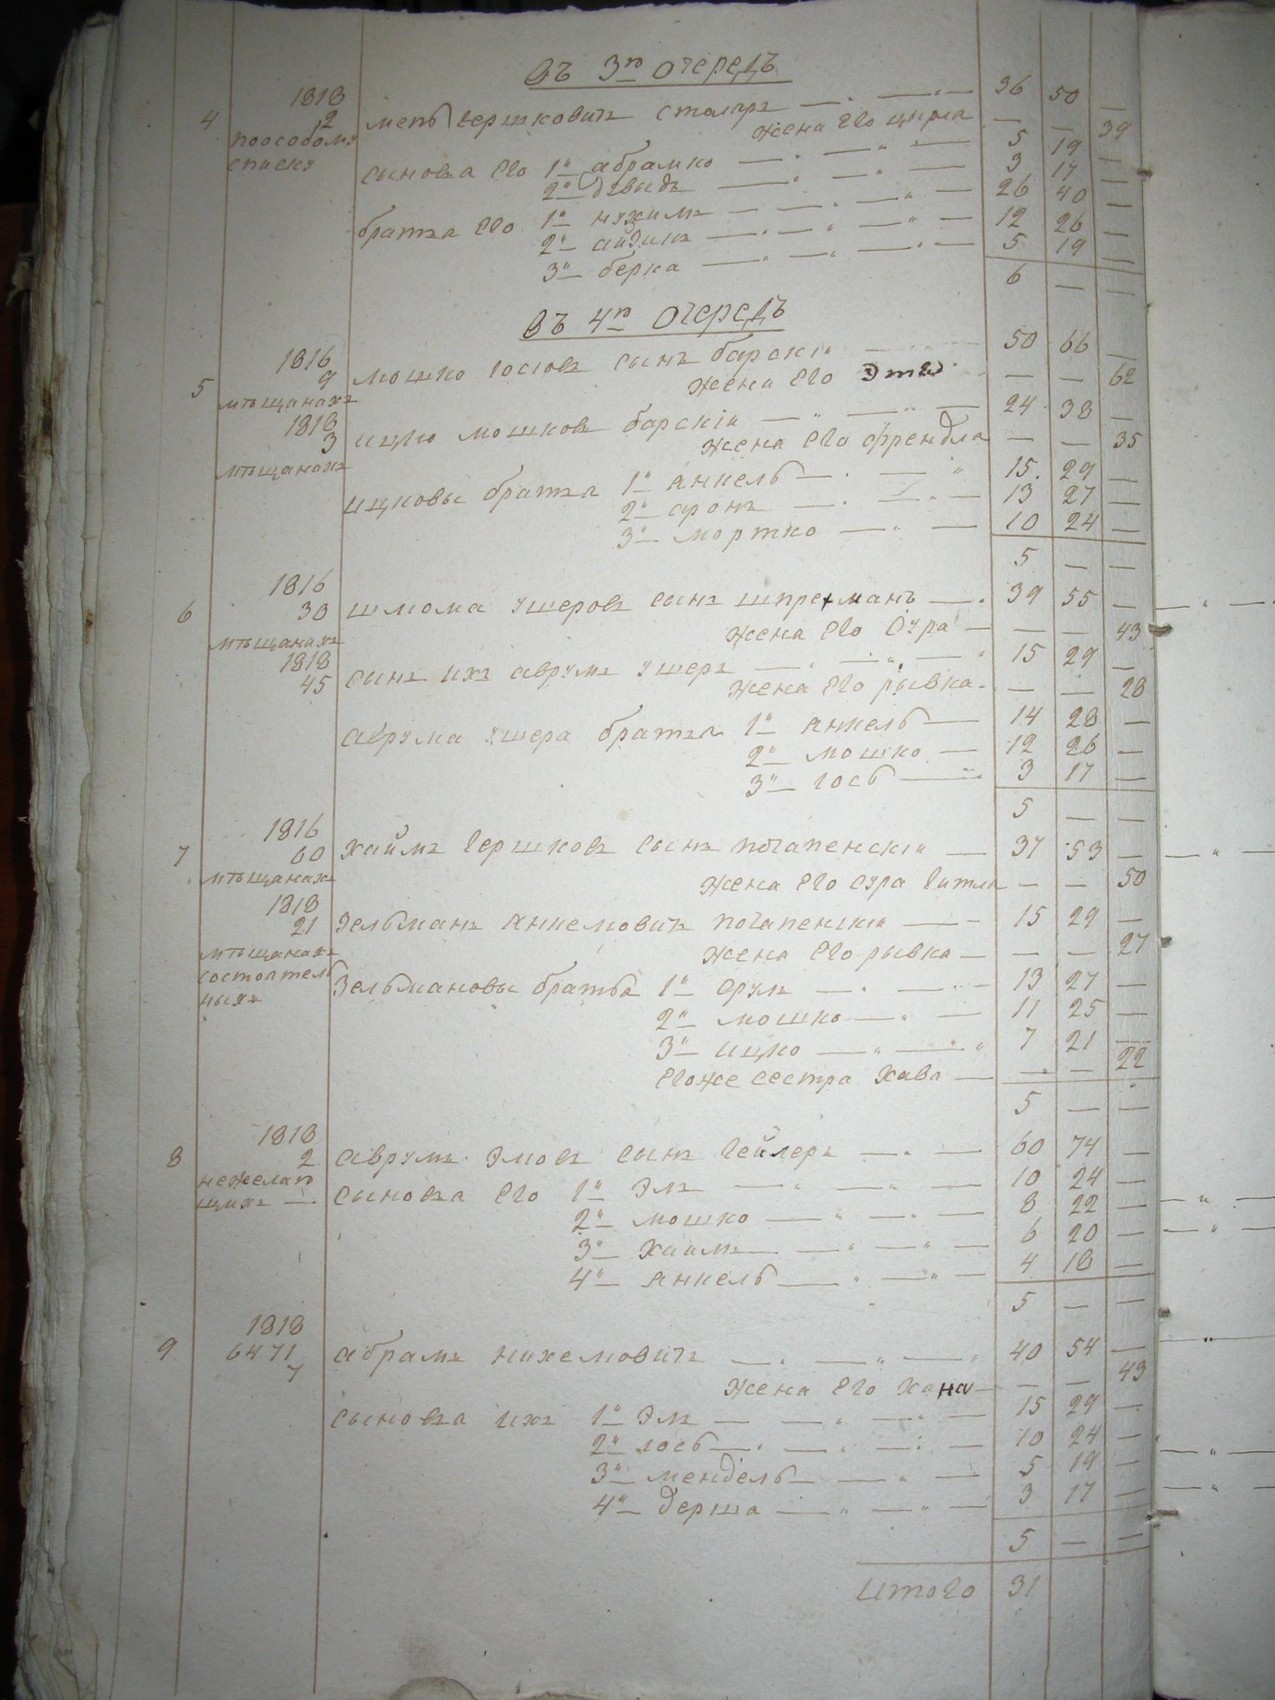 Въ 3ю очередь
1818
4 2 Мень Гершковичъ столяръ — 36 50 —
поособому жена его Цирла — — 39
списку
сыновья его 1й Абрамко — 5 19 —
2й Давыдъ — 3 17 —
братья его 1й Нухимъ — 26 40 —
2й Айзикъ — 12 26 —
3й Берка — 5 19 —
6 — —
Въ 4ю очередь
1816
5 9 Мошко Іосіовъ сынъ Барскій — 50 66 —
мѣщанахъ жена его Этя — — 62
1818
3 Ицко Мошковъ Барскій — 24 38 —
мѣщанахъ жена его Френдла — — 35
Ицковы братья 1й Анкель — 15 29 —
2й Аронъ — 13 27 —
3й Мортко — 10 24 —
5 — —
1816
6 30 Шлома Ушеровъ сынъ Шпрехманъ — 39 55 —
мѣщанахъ жена его Сура — — — 43
1818
45 сынъ ихъ Аврумъ Ушеръ — 15 29 —
жена его Рывка — — — 28
Аврума Ушера братья 1й Анкель — 14 28 —
2й Мошко — 12 26 —
3й Іось — 3 17 —
5 — —
1816
7 60 Хаимъ Гершковъ сынъ Потапенскій — 37 53 —
мѣщанахъ жена его Сура Гитля — — 50
1818
21 Зельманъ Анкелювичъ Потапенскій — 15 29 —
мѣщанахъ жена его Рывка — — — 27
состоятель
ныхъ Зельмановы братья 1й Срулъ — 13 27 —
2й Мошко — 11 25 —
3й Ицко — 7 21 —
егоже сестра Хава — — — 22
5 — —
1818
8 2 Аврумъ Элювъ сынъ Гейлеръ — 60 74 —
нежелаю
щихъ — сыновья его 1й Эль — 10 24 —
2й Мошко — 8 22 —
3й Хаимъ — 6 20 —
4й Анкель — 4 18 —
5 — —
1818
9 6471 Абрамъ Нихемовичъ — 40 54 —
7 жена его Хана — — — 43
сыновья ихъ 1й Эль — 15 29 —
2й Іось — 10 24 —
3й Мендель — 5 19 —
4й Герша — 3 17 —
5 — —
Итого 31